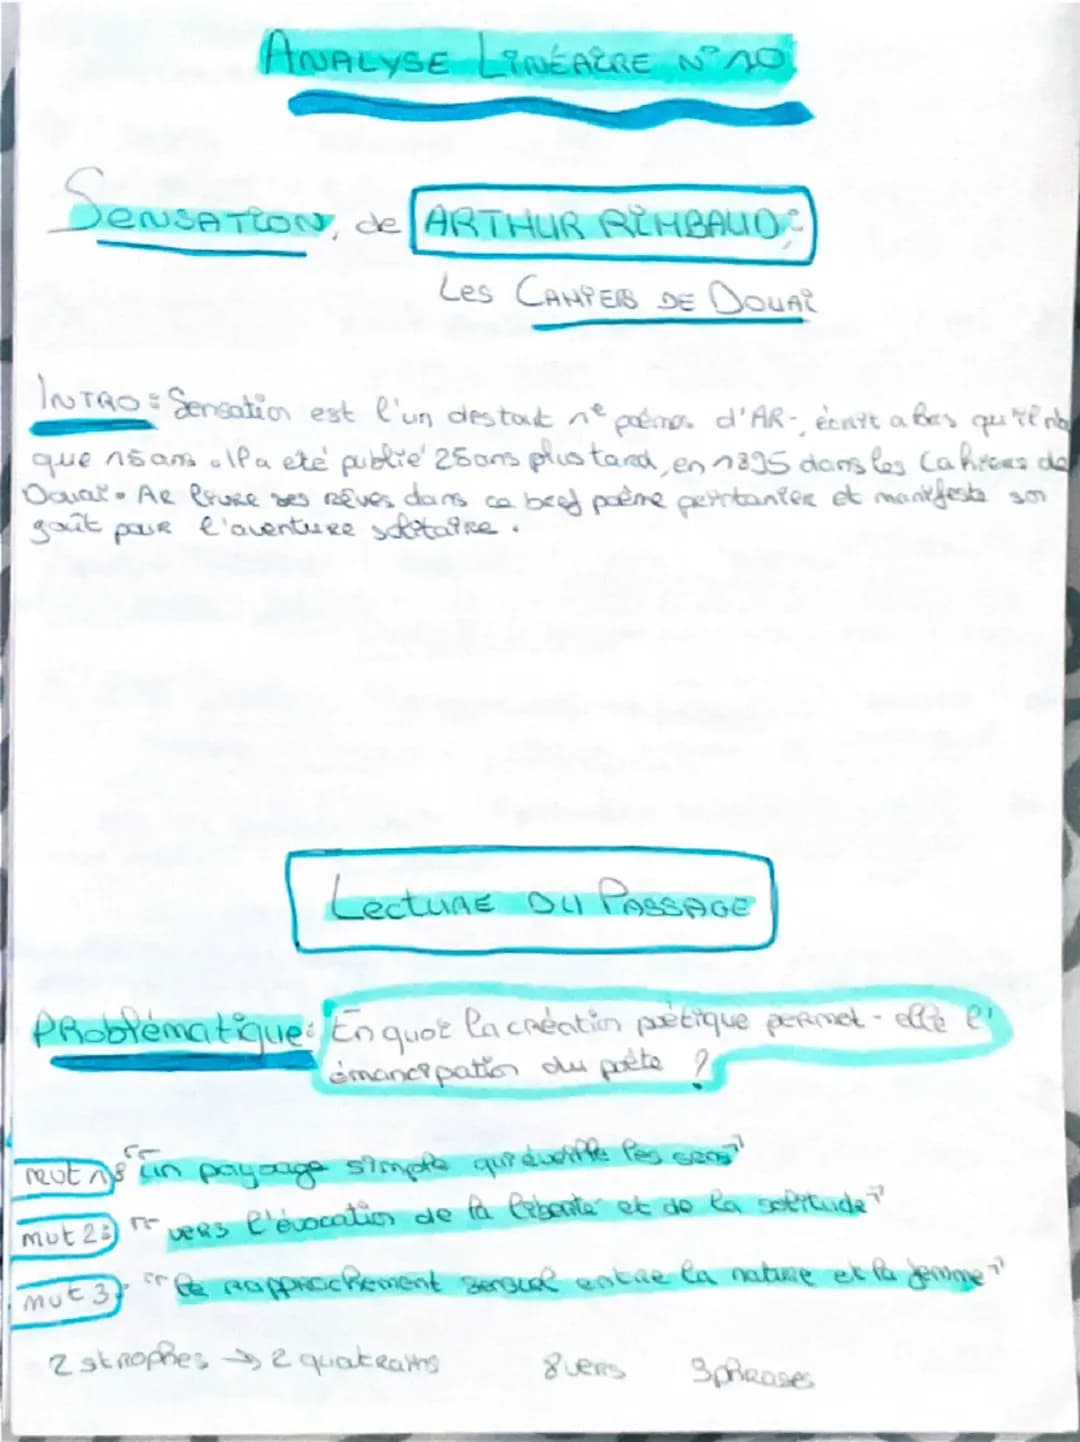 ANALYSE LINÉAIRE N°10
SENSATION, de ARTHUR RIMBAUD:
Les CAHIERS DE DOUAI
INTRO: Sensation est l'un des tout 1e poèmes d'AR-, écrit alors qu'il n'a
que 15 ans. Il a eté publié 25 ans plus tard, en 1895 dans les Cahiers de
Douai. AR livre ses rêves dans ce bref poème printanier et manifeste son
goût pour l'aventure solitaire.
LECTURE DU PASSAGE
PRoblématique: En quoi la création poétique permet-elle l'
émancipation du poète ?
mvt 1: "un paysage simple qui éveille les sens"
mvt 2: "vers l'évocation de la liberté et de la solitude"
mvt 3: "le rapprochement sensuel entre la nature et la femme"
2 strophes → 2 quatrains 8 vers 3 phrases